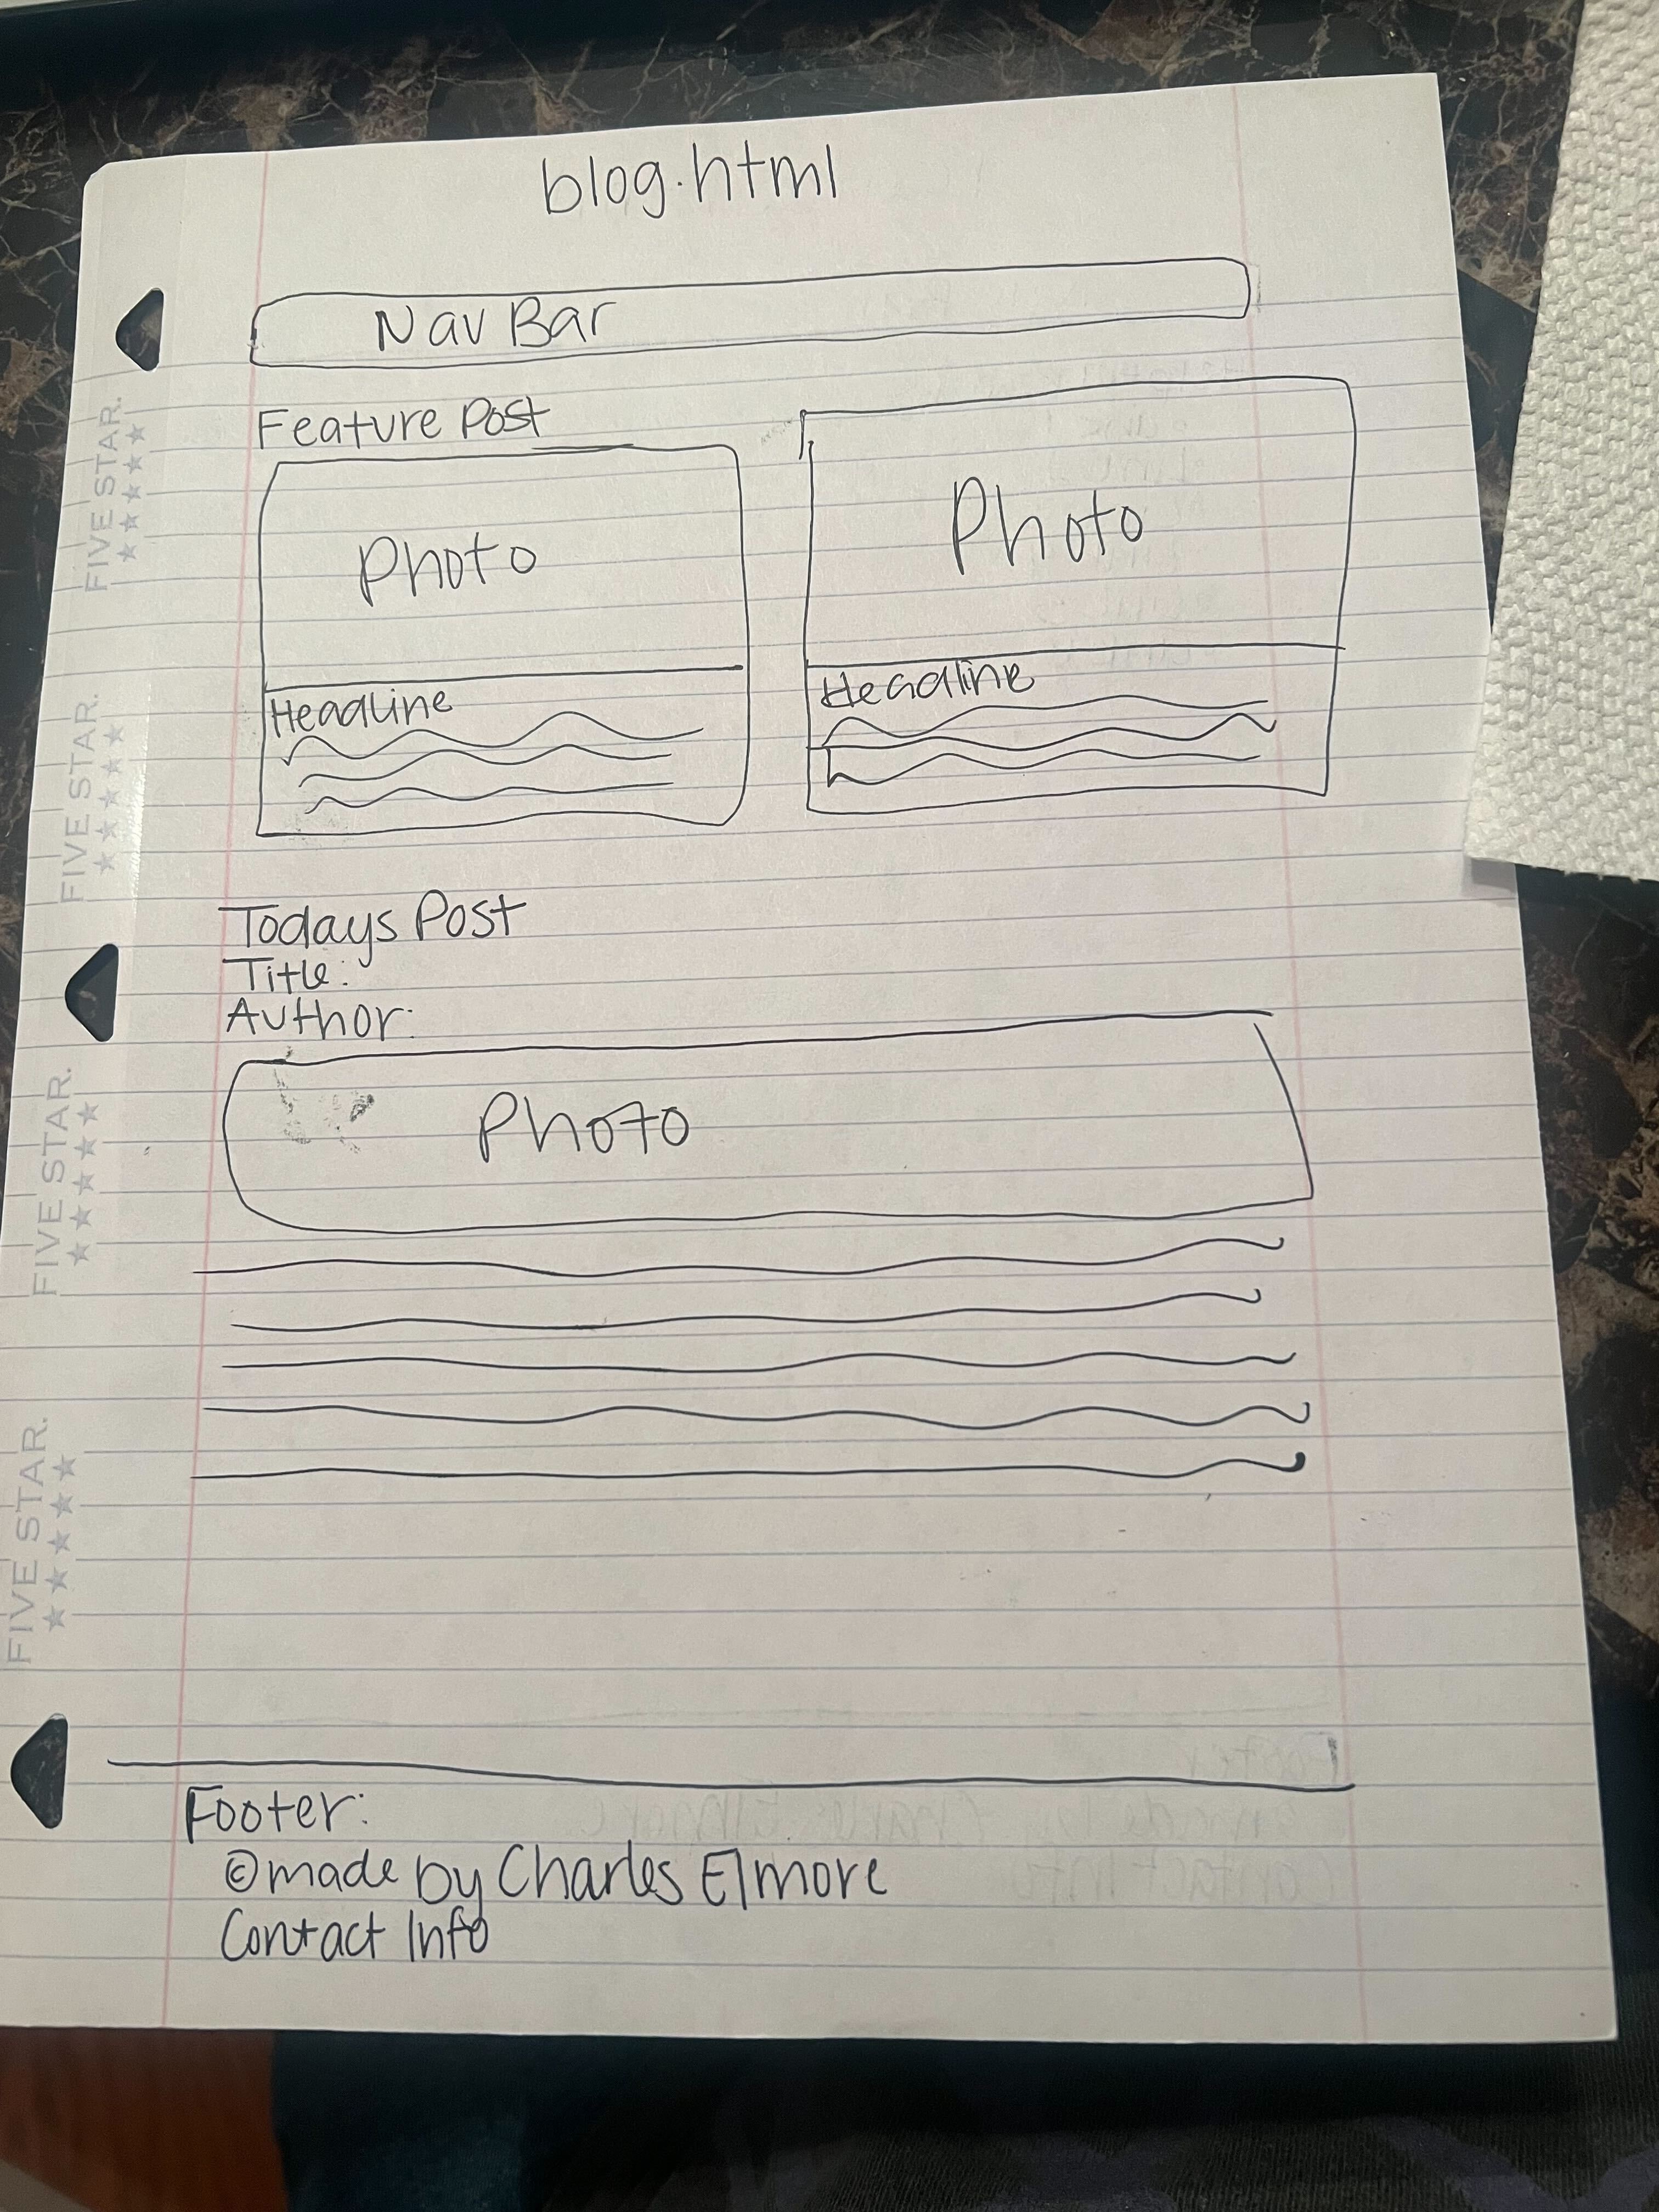 blog.html
Nav Bar
Feature Post
Photo
Photo
Headline
Headline
Todays Post
Title:
Author:
Photo
Footer:
©made by Charles Elmore
Contact Info
FIVE STAR.
FIVE STAR.
FIVE STAR.
FIVE STAR.